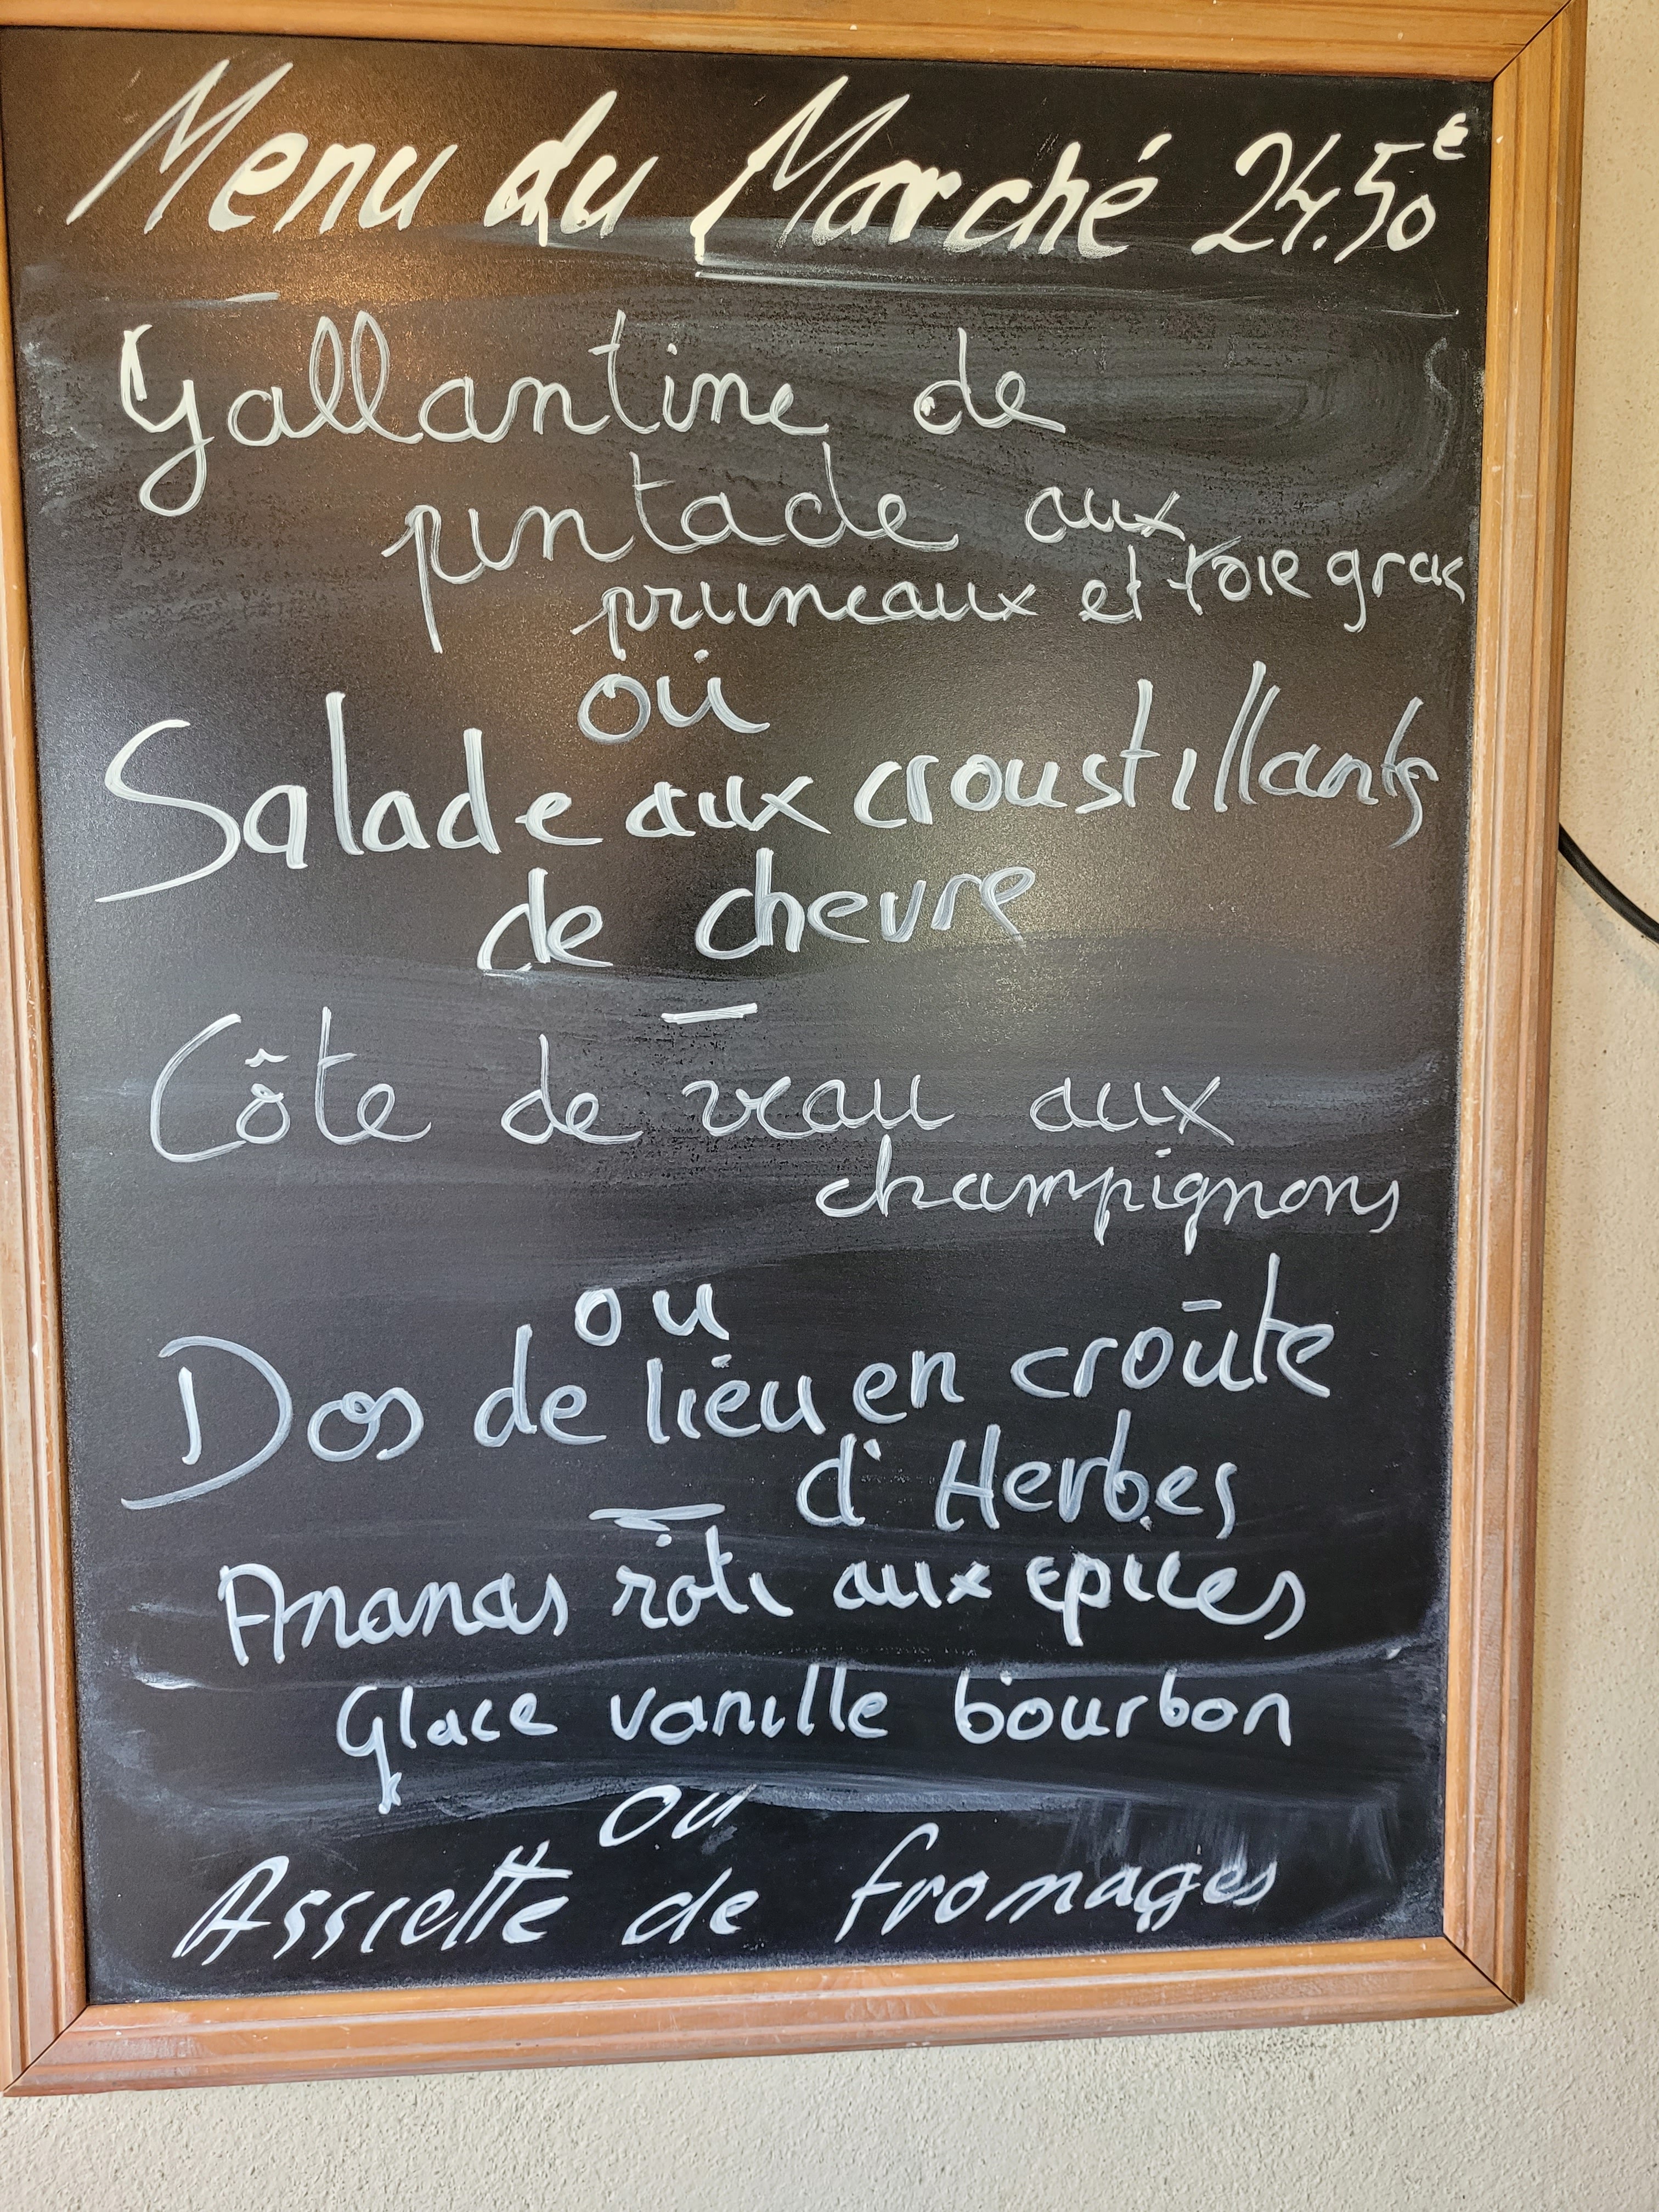 Menu du Marché 24.50€
Gallantine de
pintade aux
pruneaux et foie gras
ou
Salade aux croustillants
de chevre
Côte de veau aux
champignons
ou
Dos de lieu en croûte
d'Herbes
Ananas rôti aux epices
Glace vanille bourbon
ou
Assiette de fromages